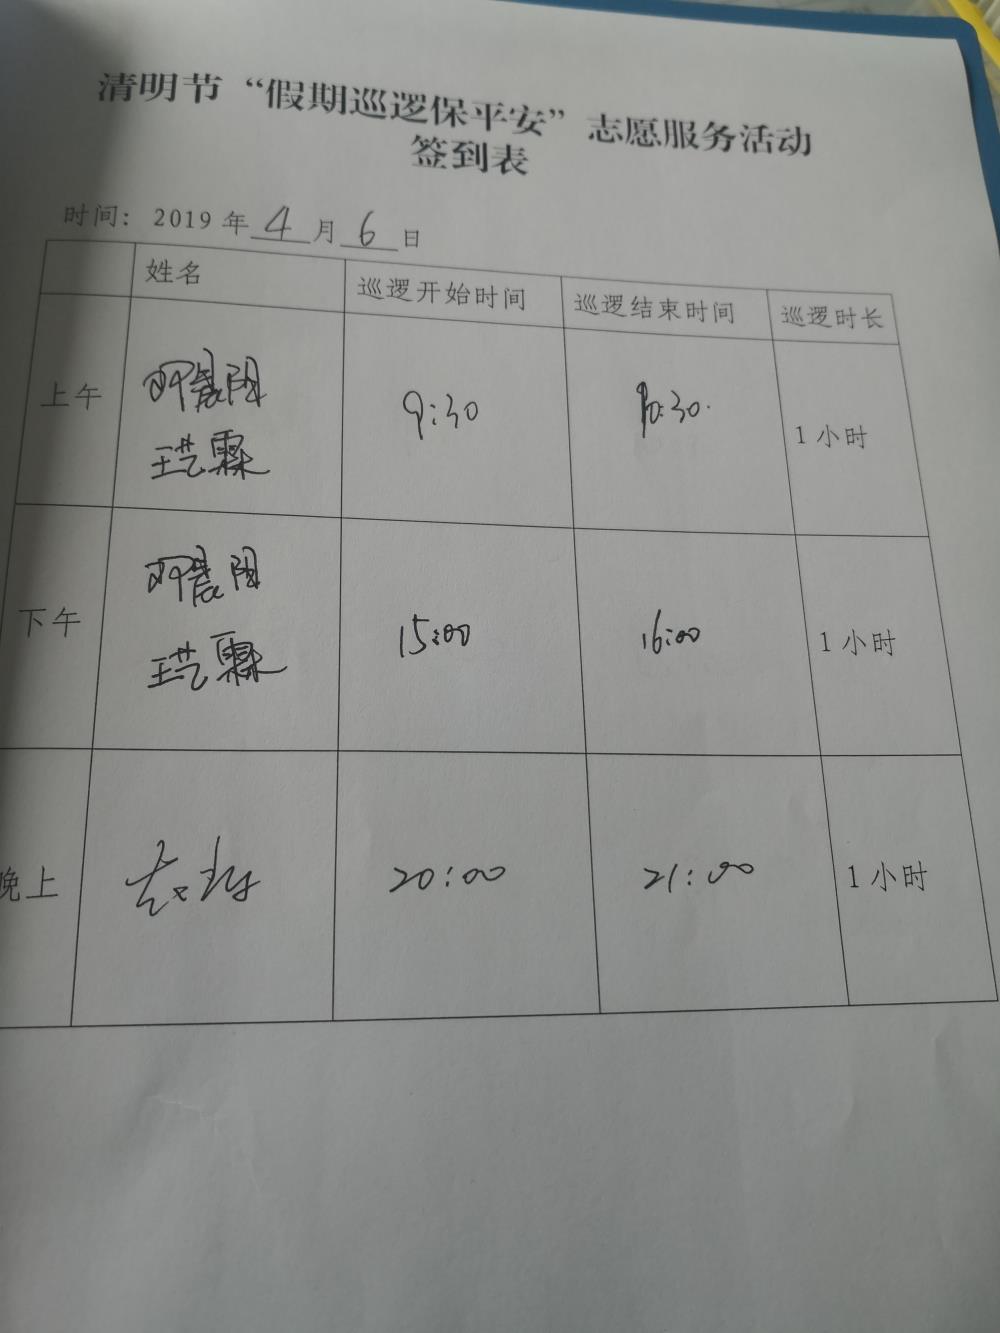 清明节“假期巡逻保平安”志愿服务活动
签到表
时间：2019年4月6日
姓名 巡逻开始时间 巡逻结束时间 巡逻时长
上午 邓晨阳 9:30 10:30 1小时
王艺霖
下午 邓晨阳 15:00 16:00 1小时
王艺霖
晚上 20:00 21:00 1小时